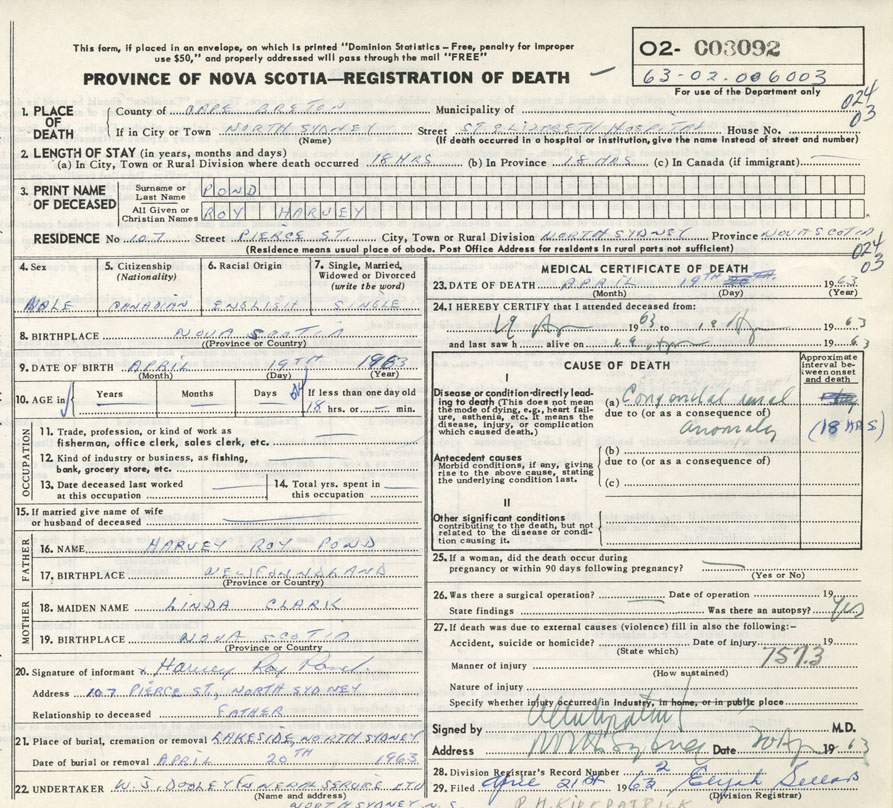 This form, if placed in an envelope, on which is printed "Dominion Statistics – Free, penalty for improper
use $50," and properly addressed will pass through the mail "FREE"
PROVINCE OF NOVA SCOTIA—REGISTRATION OF DEATH
02- C03092
63-02.006003
For use of the Department only
024
03
1. PLACE OF DEATH
County of CAPE BRETON Municipality of
If in City or Town NORTH SYDNEY Street ST ELIZABETH HOSPITAL House No.
(Name) (If death occurred in a hospital or institution, give the name instead of street and number)
2. LENGTH OF STAY (in years, months and days)
(a) In City, Town or Rural Division where death occurred 18 HRS (b) In Province 18 HRS (c) In Canada (if immigrant)
3. PRINT NAME OF DECEASED
Surname or Last Name POND
All Given or Christian Names ROY HARVEY
RESIDENCE No 107 Street PIERCE ST. City, Town or Rural Division NORTH SYDNEY Province NOVA SCOTIA
(Residence means usual place of abode. Post Office Address for residents in rural parts not sufficient)
024
03
4. Sex MALE
5. Citizenship (Nationality) CANADIAN
6. Racial Origin ENGLISH
7. Single, Married, Widowed or Divorced (write the word) SINGLE
8. BIRTHPLACE NOVA SCOTIA
(Province or Country)
9. DATE OF BIRTH APRIL 19TH 1963
(Month) (Day) (Year)
10. AGE in Years Months Days If less than one day old
18 hrs. or min.
OCCUPATION
11. Trade, profession, or kind of work as
fisherman, office clerk, sales clerk, etc.
12. Kind of industry or business, as fishing,
bank, grocery store, etc.
13. Date deceased last worked
at this occupation
14. Total yrs. spent in
this occupation
15. If married give name of wife
or husband of deceased
FATHER
16. NAME HARVEY ROY POND
17. BIRTHPLACE NEWFOUNDLAND
(Province or Country)
MOTHER
18. MAIDEN NAME LINDA CLARK
19. BIRTHPLACE NOVA SCOTIA
(Province or Country)
20. Signature of informant x Harvey Roy Pond
Address 107 PIERCE ST, NORTH SYDNEY
Relationship to deceased FATHER
21. Place of burial, cremation or removal LAKESIDE, NORTH SYDNEY
Date of burial or removal APRIL 20TH 1963
22. UNDERTAKER W.J. DOOLEY FUNERAL SERVICE LTD
(Name and address)
NORTH SYDNEY N.S.
MEDICAL CERTIFICATE OF DEATH
23. DATE OF DEATH APRIL 19TH 1963
(Month) (Day) (Year)
24. I HEREBY CERTIFY that I attended deceased from:
19 Apr 1963 to 19 Apr 1963
and last saw h alive on 19 Apr 1963
CAUSE OF DEATH
Approximate interval between onset and death
I
Disease or condition directly leading to death (This does not mean
the mode of dying, e.g., heart failure, asthenia, etc. It means the
disease, injury, or complication
which caused death.)
(a) Congenital renal
due to (or as a consequence of)
anomaly
(18 HRS)
Antecedent causes
Morbid conditions, if any, giving
rise to the above cause, stating
the underlying condition last.
(b)
due to (or as a consequence of)
(c)
II
Other significant conditions
contributing to the death, but not
related to the disease or condition causing it.
25. If a woman, did the death occur during
pregnancy or within 90 days following pregnancy?
(Yes or No)
26. Was there a surgical operation? Date of operation 19
State findings Was there an autopsy? Yes
27. If death was due to external causes (violence) fill in also the following:-
Accident, suicide or homicide? Date of injury 19
(State which) 757.3
Manner of injury
(How sustained)
Nature of injury
Specify whether injury occurred in industry, in home, or in public place
Signed by M.D.
Address Date 20 Apr 1963
28. Division Registrar's Record Number 2
29. Filed April 21st 1963
(Division Registrar)
R.H. KIRKPATRICK